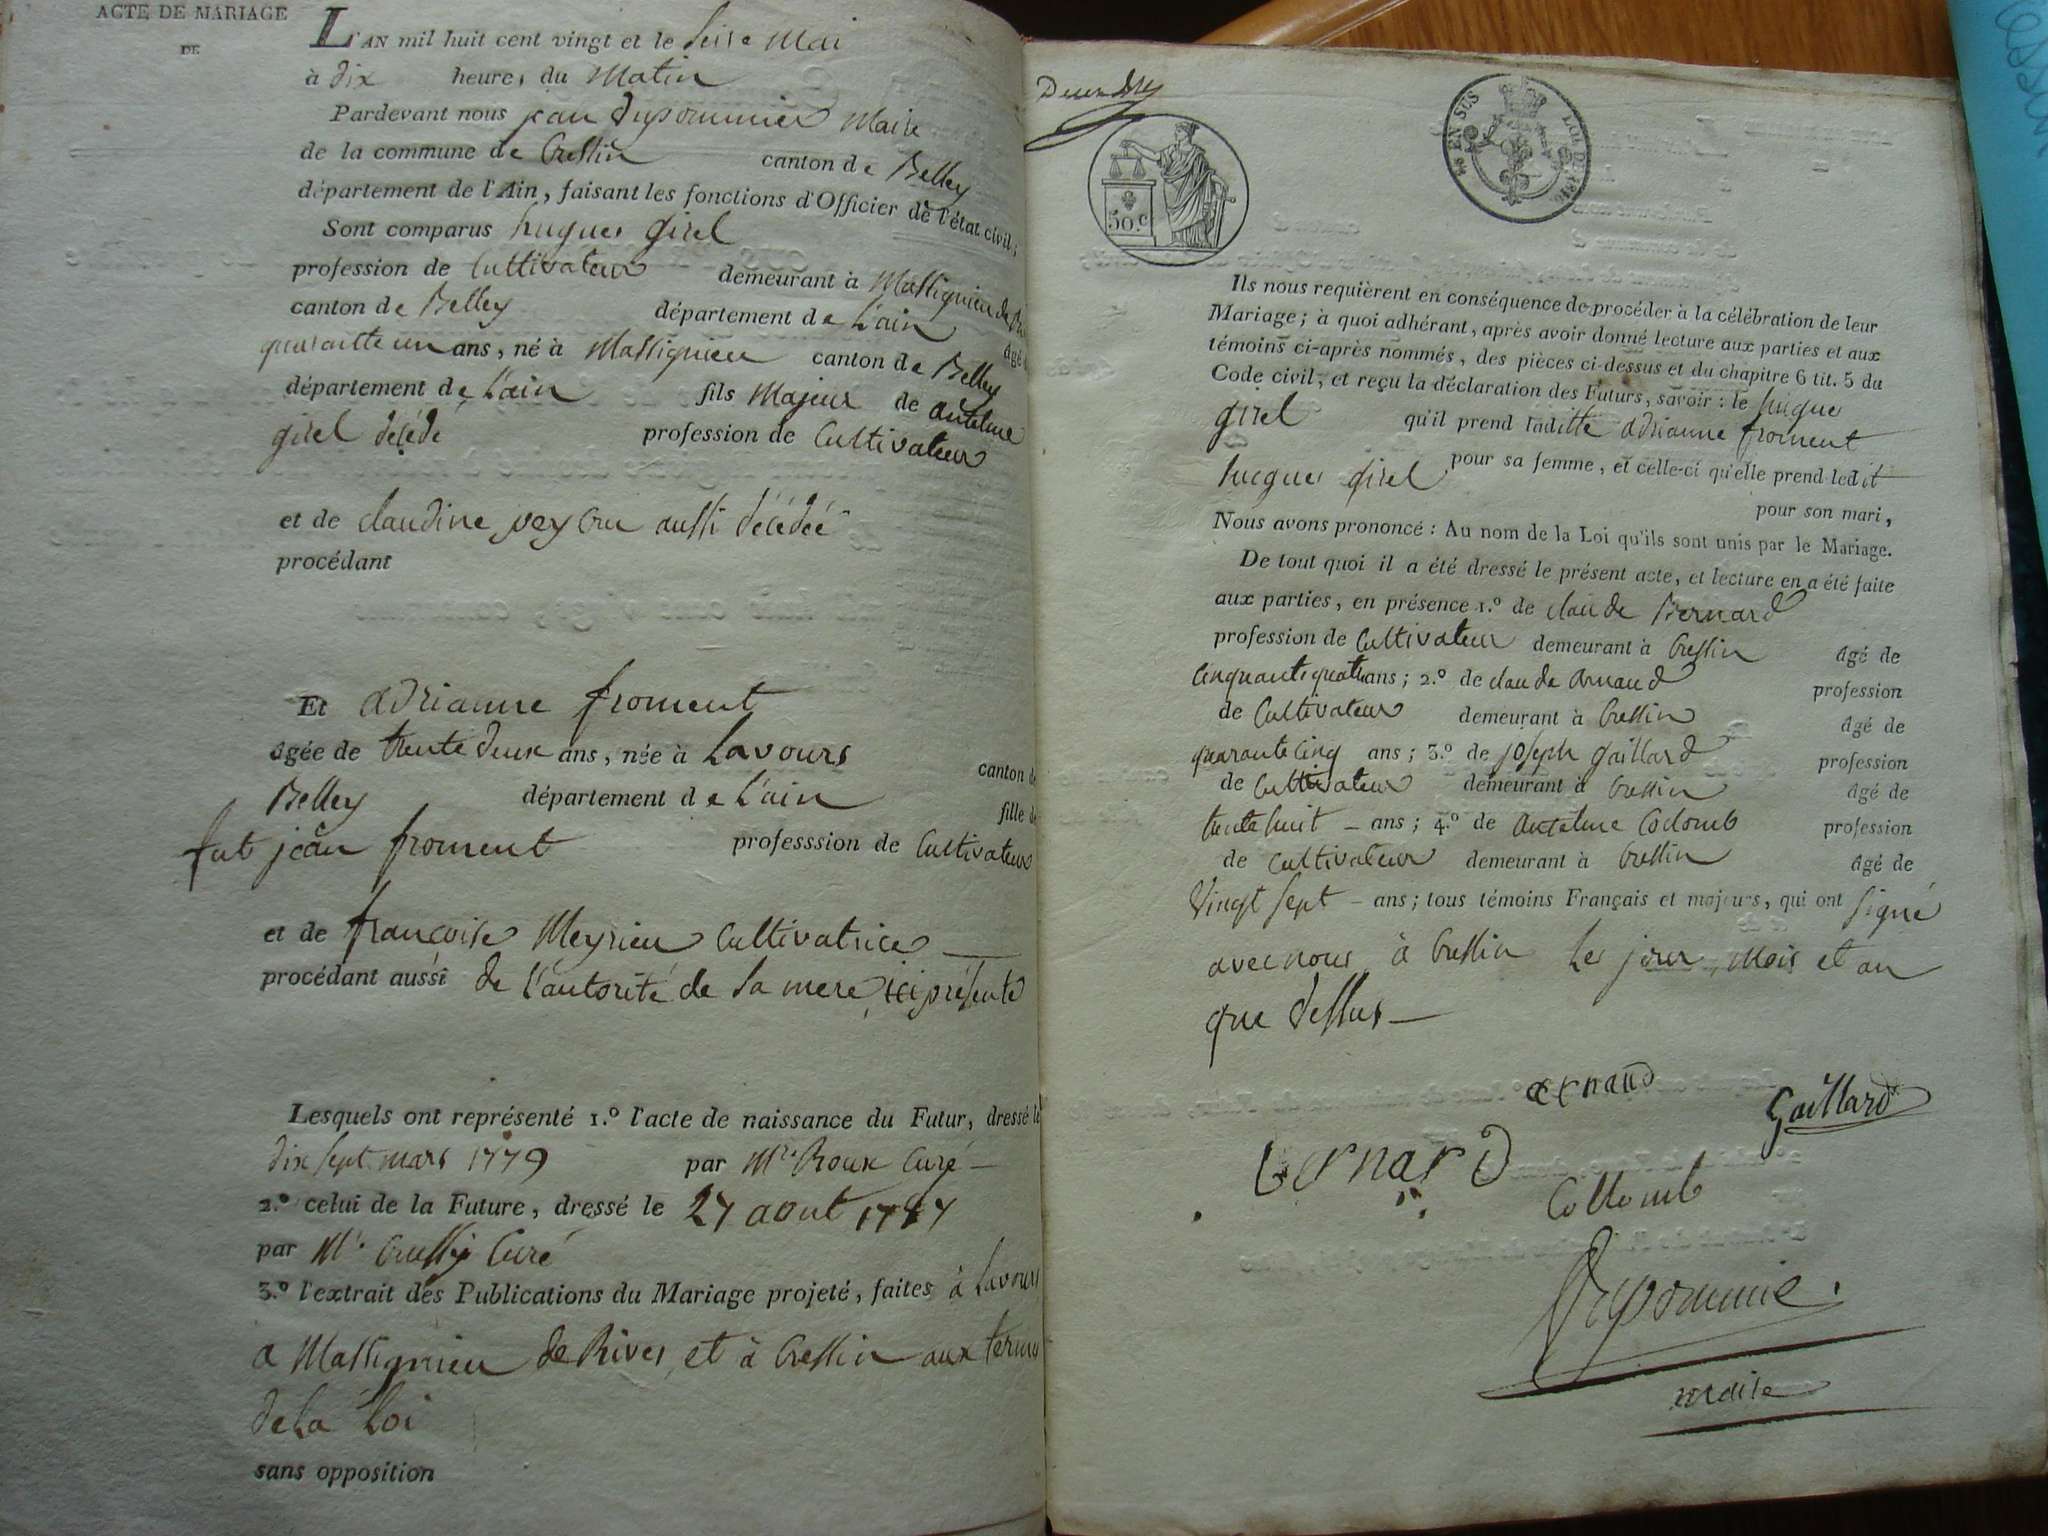 ACTE DE MARIAGE
DE
L'AN mil huit cent vingt et le seise Mai
à dix heures du Matin
Pardevant nous jean Dupommier Maire
de la commune de Cressin canton de Belley
département de l'Ain, faisant les fonctions d'Officier de l'état civil,
Sont comparus hugues girel
profession de Cultivateur demeurant à Massignieu de
canton de Belley département de L'ain âgé
quarantte un ans, né à Massignieu canton de Belley
département de L'ain fils Majeur de antelme
girel décédé profession de Cultivateur
et de claudine aussi décédéé
procédant
Et adrianne froment
agée de trente deux ans, née à Lavours canton de
Belley département de L'ain fille de
fut jean froment professsion de Cultivateur
et de françoise Meyrieu Cultivatrice
procédant aussi de L'autorité de sa mere ici présente
Lesquels ont représenté 1.º l'acte de naissance du Futur, dressé le
dix sept mars 1779 par Mr. Roux Curé
2.º celui de la Future, dressé le 27 aout 1787
par Mr. Curé
3.º l'extrait des Publications du Mariage projeté, faites à Lavours
a Massignieu de Rives et à Cressin aux termes
de La Loi
sans opposition
50.c
EN SUS
LOI DE
Ils nous requièrent en conséquence de procéder à la célébration de leur
Mariage; à quoi adhérant, après avoir donné lecture aux parties et aux
témoins ci-après nommés, des pièces ci-dessus et du chapitre 6 tit. 5 du
Code civil, et reçu la déclaration des Futurs, savoir: le hugue
girel qu'il prend laditte adrianne froment
pour sa femme, et celle-ci qu'elle prend ledit
hugues girel pour son mari,
Nous avons prononcé: Au nom de la Loi qu'ils sont unis par le Mariage.
De tout quoi il a été dressé le présent acte, et lecture en a été faite
aux parties, en présence 1.º de claude Bernard
profession de Cultivateur demeurant à Cressin âgé de
Cinquante quatre ans; 2.º de claude arnaud profession
de Cultivateur demeurant à Cressin âgé de
quarante cinq ans; 3.º de joseph gaillard profession
de Cultivateur demeurant à Cressin âgé de
trente huit ans; 4.º de antelme Colomb profession
de Cultivateur demeurant à Cressin âgé de
Vingt sept ans; tous témoins Français et majeurs, qui ont signé
avec nous à Cressin Les jour, Mois et an
que dessus
arnaud
Gaillard
bernard
Collomb
Dupommie.
maire